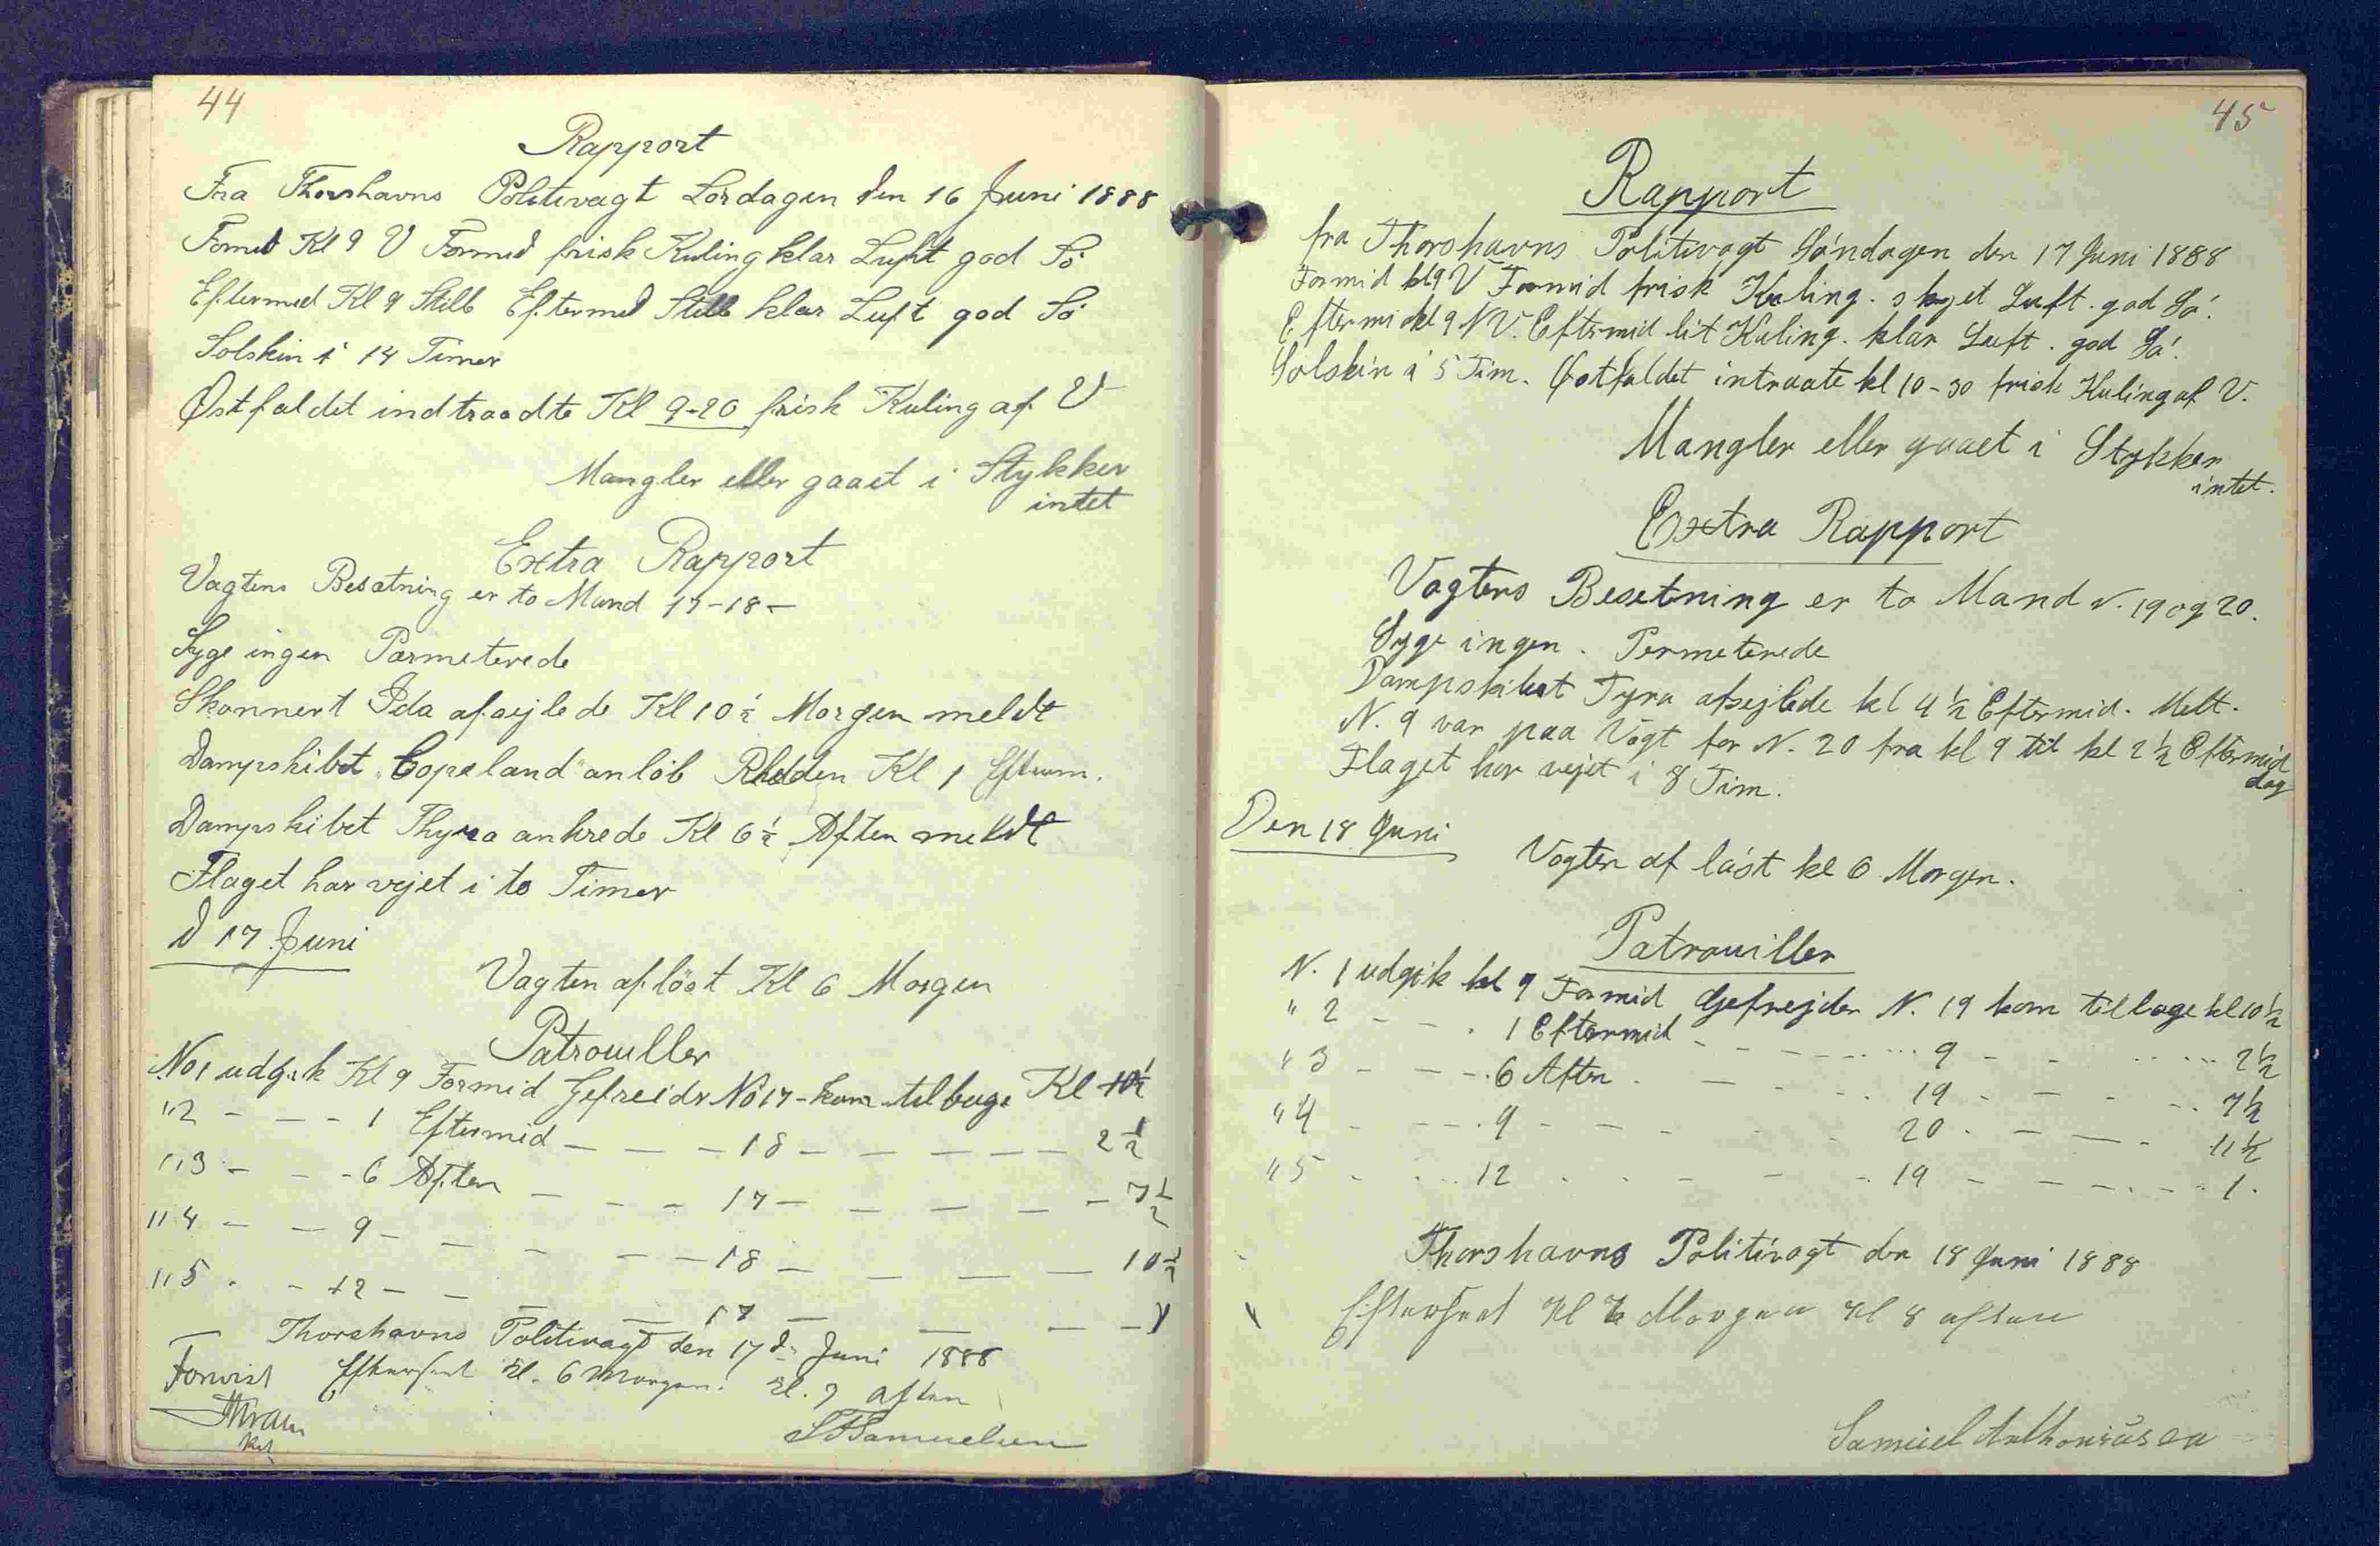 44
Rapport
Fra Thorshavns Politivagt Lördagen den 16 Juni 1888
Formid Kl 9 V Formid frisk Kuling klar Luft god Sö
Eftermid Kl 9 Still Eftermid Still klar Luft god Sö
Solskin i 14 Timer
Østfaldet indtraadte Kl 9-20 frisk Kuling af V
Mangler eller gaaet i Stykker
intet
Extra Rapport
Vagtens Besætning er to Mand 17-18-
Syge ingen Parmeterede
Skonnert Ida afsejlede Kl 10 ½ Morgen meldt
Dampskibet "Copeland" anlöb Rheden Kl 1 Efterm.
Dampskibet Thyra ankrede Kl 6 ½ Aften meldt
Flaget har vejet i to Timer
d 17 Juni
Vagten aflöst Kl 6 Morgen
Patrouller
No 1 udgik Kl 9 Formid Gefreidr No 17 - kom tilbage Kl 10½
"2 - - - 1 Eftermid - - - 18 - - - - - 2½
"3 - - - 6 Aften - - - 17 - - - - - 7½
"4 - - 9 - - - - - 18 - - - - 10½
"5 - - 12 - - - - 17 - - - - 1
Thorshavns Politivagt den 17 d. Juni 1888
Forvist Efterseet Kl. 6 Morgen. Kl. 9 aften
SSamuelsen
45
Rapport
fra Thorshavns Politivagt Söndagen den 17 Juni 1888
Formid kl 9 V Formid frisk Kuling. skyet Luft. god Sö.
Eftermi kl 9 NV. Eftermid lit Kuling. klar Luft. god Sö.
Solskin i 5 Tim. Østfaldet intraate kl 10-30 frisk Kuling af V.
Mangler eller gaaet i Stykker
intet.
Extra Rapport
Vagtens Besetning er to Mand N. 19 og 20.
Syge ingen. Permeterede
Dampskibet Tyra afsejlede kl 4 ½ Eftermid. Melt.
N. 9 var paa Vagt for N. 20 fra kl 9 til kl 2 ½ Eftermid
dag
Flaget har vejet i 8 Tim.
Den 18 Juni
Vagten af löst kl 6 Morgen.
Patrouiller
N. 1 udgik kl 9 Formid Gefrejder N. 19 kom tilbage kl 10 ½
"2 - - . 1 Eftermid - - - - - 9 - - - - 2½
"3 - - - 6 Aften - - - - 19 - - - - 7½
"4 - - - 9 - - - - - 20 - - - - 11½
"5 - - - 12 - - - - 19 - - - - 1.
Thorshavns Politivagt den 18 Juni 1888
Efterseet Kl 6 Morgen Kl 8 aften
Samuel Anthoniusen